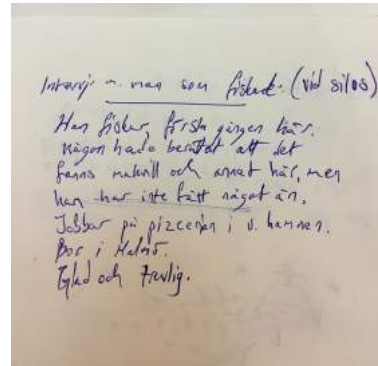 Intervju m. man som fiskade. (vid silos)
Han fiskar, första gången här.
någon hade berättat att det
fanns makrill och annat här, men
han har inte fått något än.
Jobbar på pizzerian i v. hamnen.
Bor i Malmö.
Glad och trevlig.